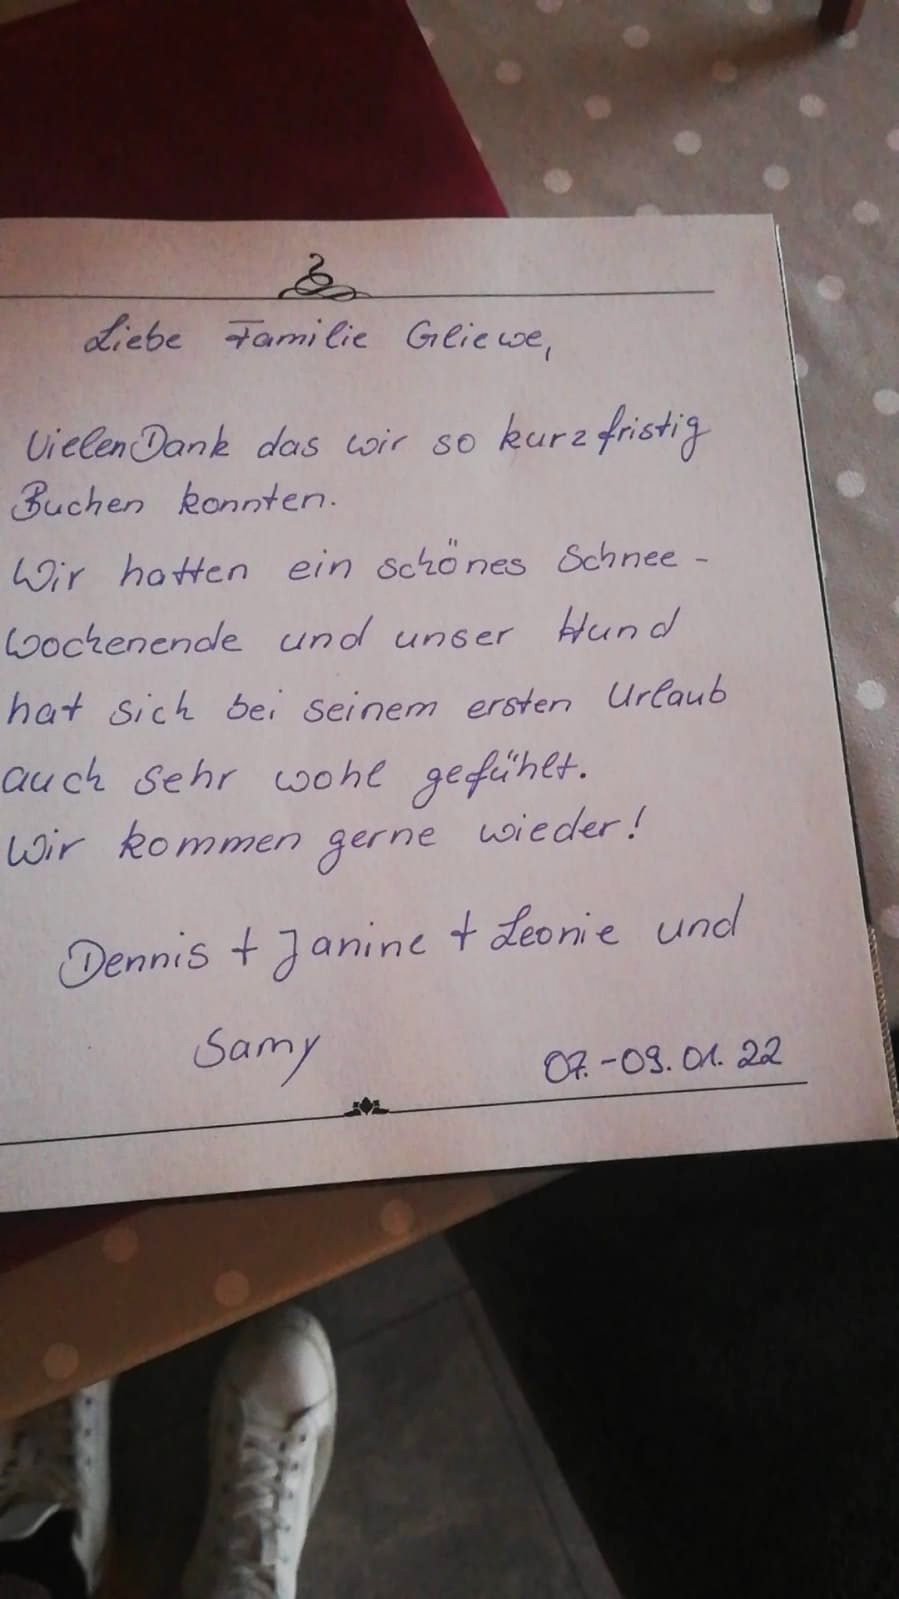 Liebe Familie Gliewe,
Vielen Dank das wir so kurzfristig
Buchen konnten.
Wir hatten ein schönes Schnee-
wochenende und unser Hund
hat sich bei seinem ersten Urlaub
auch sehr wohl gefühlt.
Wir kommen gerne wieder!
Dennis + Janine + Leonie und
Samy 07.-09.01.22